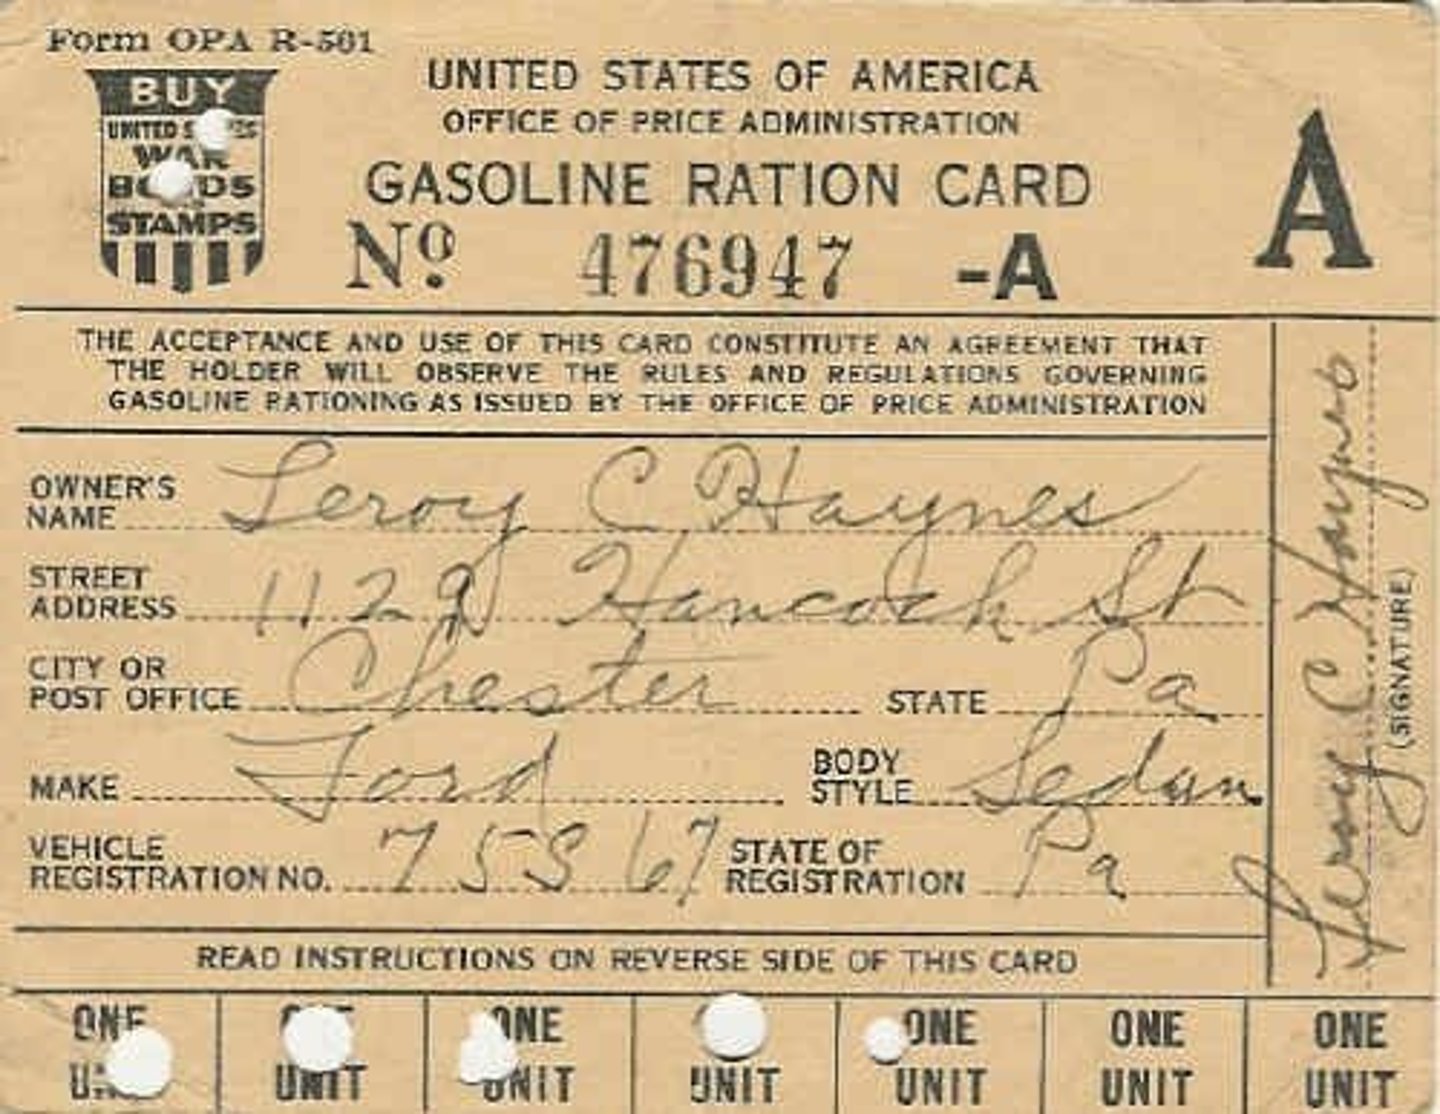 Form OPA R-501
BUY
UNITED STATES
WAR
BONDS
STAMPS
UNITED STATES OF AMERICA
OFFICE OF PRICE ADMINISTRATION
GASOLINE RATION CARD
No. 476947 -A
A
THE ACCEPTANCE AND USE OF THIS CARD CONSTITUTE AN AGREEMENT THAT
THE HOLDER WILL OBSERVE THE RULES AND REGULATIONS GOVERNING
GASOLINE RATIONING AS ISSUED BY THE OFFICE OF PRICE ADMINISTRATION
OWNER'S
NAME Leroy C Haynes
STREET
ADDRESS 1129 Hancock St
CITY OR
POST OFFICE Chester STATE Pa
MAKE Ford BODY STYLE Sedan
VEHICLE
REGISTRATION NO. 75S67 STATE OF REGISTRATION Pa
Leroy C Haynes
(SIGNATURE)
READ INSTRUCTIONS ON REVERSE SIDE OF THIS CARD
ONE ONE ONE ONE ONE ONE
UNIT UNIT UNIT UNIT UNIT UNIT UNIT